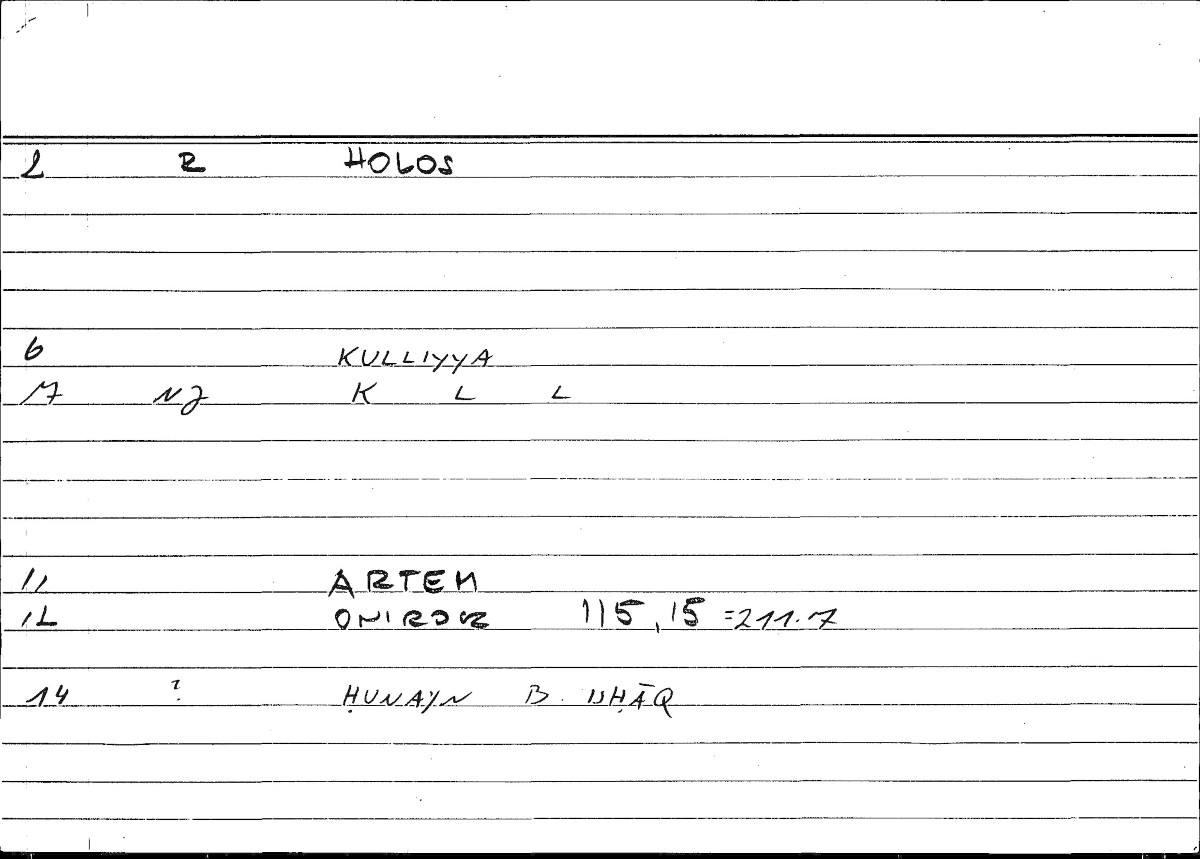 2 R HOLOS
6 KULLIYYA
17 NJ K L L
11 ARTEM
12 115,15 =211.7
14 ? ḤUNAYN B. ISḤĀQ